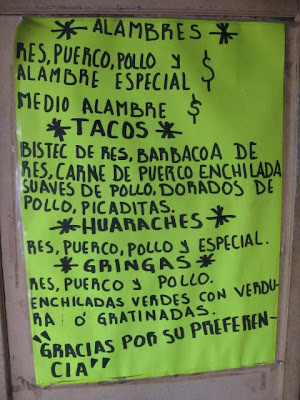 * ALAMBRES *
RES, PUERCO, POLLO Y $
ALAMBRE ESPECIAL
MEDIO ALAMBRE $
*TACOS*
BISTEC DE RES, BARBACOA DE
RES, CARNE DE PUERCO ENCHILADA
SUAVES DE POLLO, DORADOS DE
POLLO, PICADITAS.
*HUARACHES*
RES, PUERCO, POLLO Y ESPECIAL.
*GRINGAS*
RES, PUERCO Y POLLO.
ENCHILADAS VERDES CON VERDU-
RA Ó GRATINADAS.
"GRACIAS POR SU PREFEREN-
CIA"